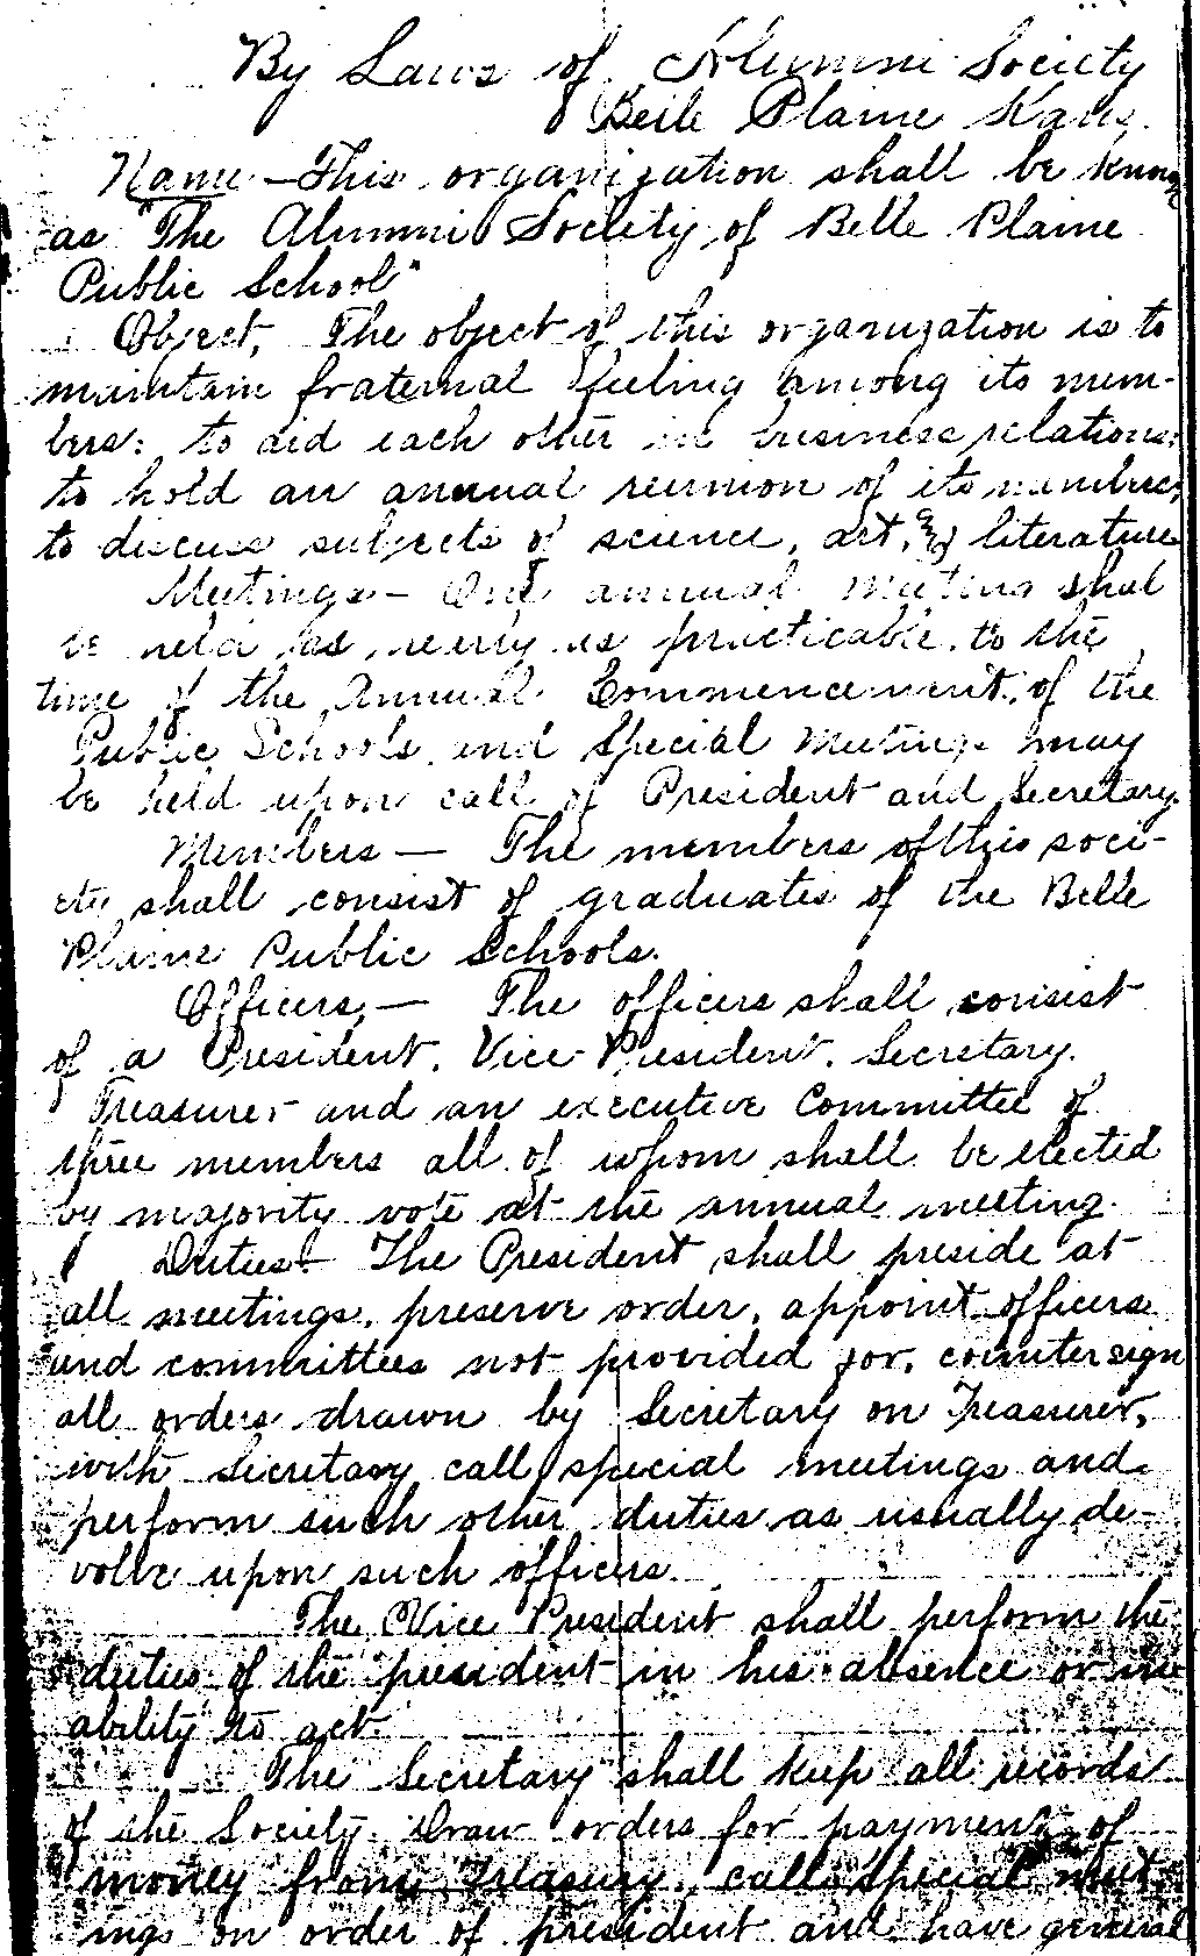 By Laws of Alumni Society
Belle Plaine Kans.
Name - This organization shall be known
as "The Alumni Society of Belle Plaine
Public School"
Object, The object of this organization is to
maintain fraternal feeling among its mem-
bers: to aid each other in business relations:
to hold an annual reunion of its members;
to discuss subjects of science, art, & literature
Meetings - One annual meeting shal
be held as near as practicable to the
time of the Annual Commencement, of the
Public Schools and Special Meetings may
be held upon call of President and Secretary.
Members — The members of this soci-
ety shall consist of graduates of the Belle
Plaine Public Schools.
Officers, — The officers shall consist
of a President, Vice-President, Secretary.
Treasurer and an executive Committee of
three members all of whom shall be elected
by majority vote at the annual meeting.
Duties - The President shall preside at
all meetings, preserve order, appoint officers
and committees not provided for, countersign
all orders drawn by Secretary on Treasurer,
with Secretary call special meetings and
perform such other duties as usually de-
volve upon such officers.
The Vice President shall perform the
duties of the president in his absence or in-
ability to act.
The Secretary shall keep all records
of the Society. Draw orders for payment of
money from Treasury, call special meet-
ings on order of president and have general